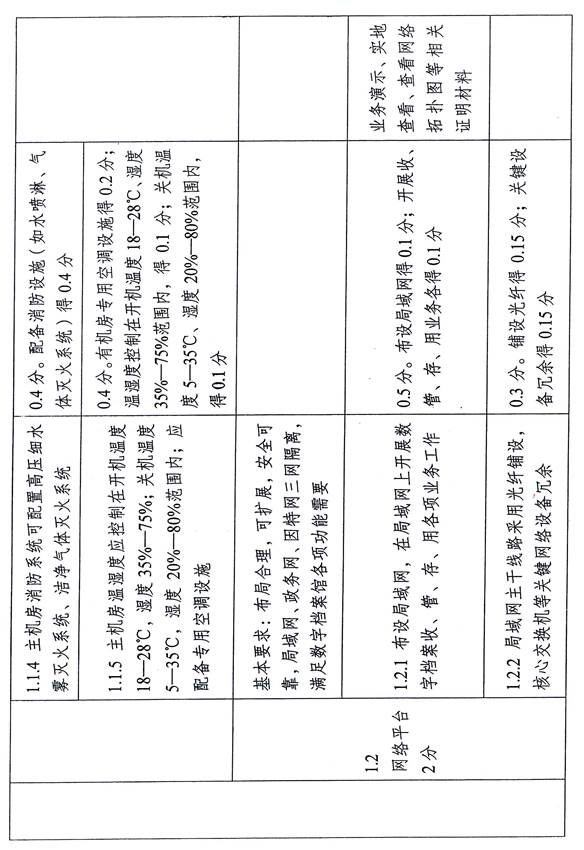 1.1.4 主机房消防系统可配置高压细水
雾灭火系统、洁净气体灭火系统
0.4 分。配备消防设施（如水喷淋、气
体灭火系统）得 0.4 分
1.1.5 主机房温湿度应控制在开机温度
18—28℃，湿度 35%—75%；关机温度
5—35℃，湿度 20%—80%范围内；应
配备专用空调设施
0.4 分。有机房专用空调设施得 0.2 分；
温湿度控制在开机温度 18—28℃、湿度
35%—75%范围内，得 0.1 分；关机温
度 5—35℃、湿度 20%—80%范围内，
得 0.1 分
1.2
网络平台
2 分
基本要求：布局合理，可扩展，安全可
靠，局域网、政务网、因特网三网隔离，
满足数字档案馆各项功能需要
1.2.1 布设局域网，在局域网上开展数
字档案收、管、存、用各项业务工作
0.5 分。布设局域网得 0.1 分；开展收、
管、存、用业务各得 0.1 分
业务演示、实地
查看、查看网络
拓扑图等相关
证明材料
1.2.2 局域网主干线路采用光纤铺设，
核心交换机等关键网络设备冗余
0.3 分。铺设光纤得 0.15 分；关键设
备冗余得 0.15 分